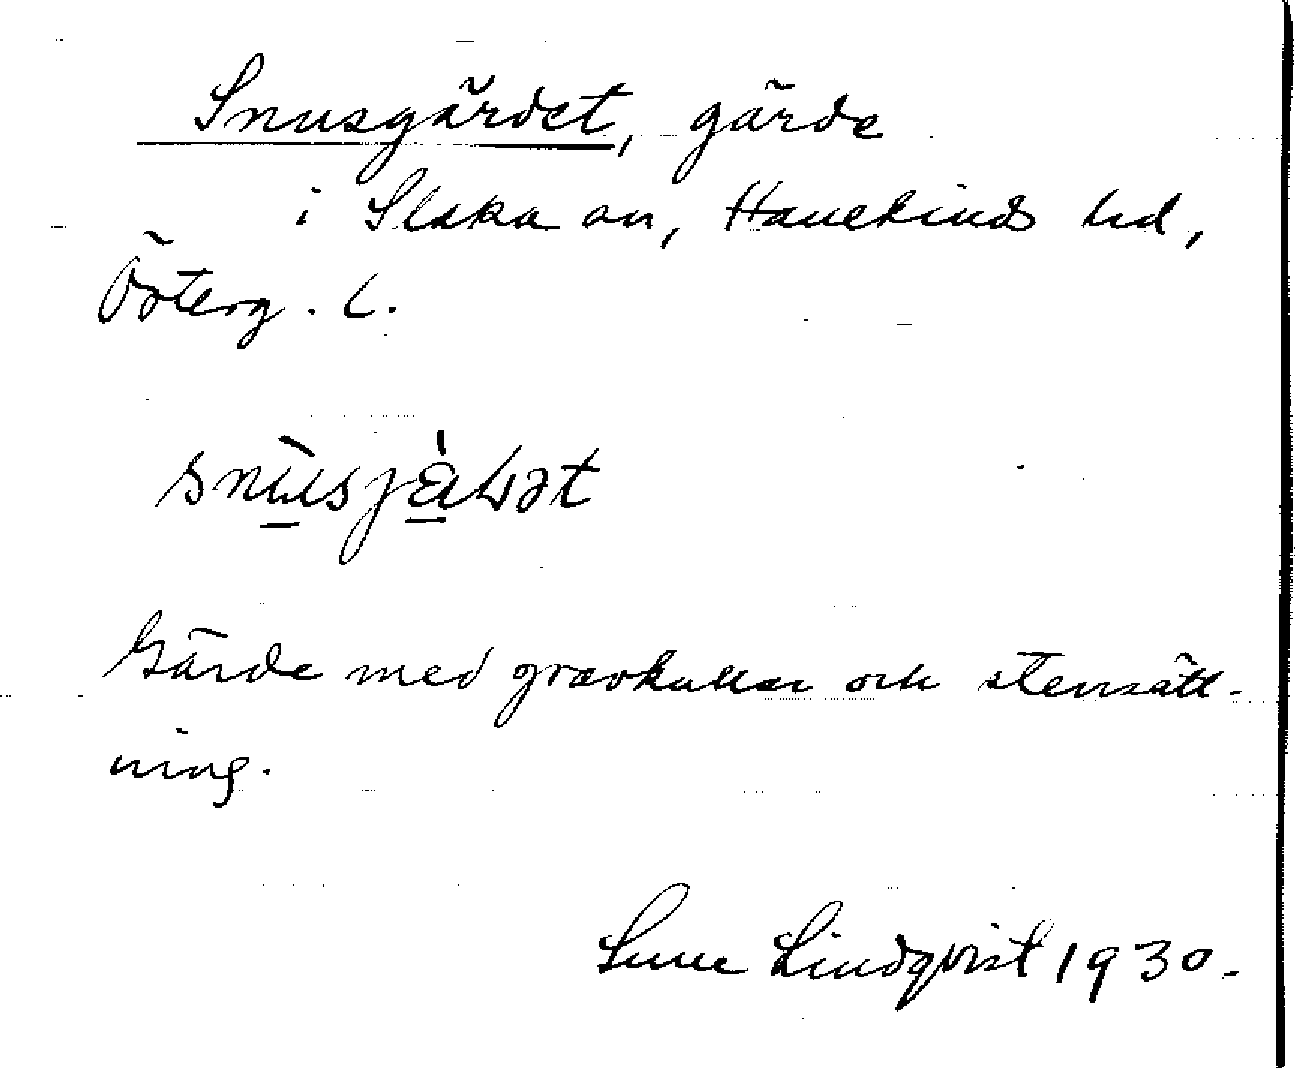 Snusgärdet, gärde
i Slaka sn, Hanekinds hd,
Österg. l.
snùsjæ̀ḷət
Gärde med gravkullar och stensätt-
ning.
Sune Lindqvist 1930.